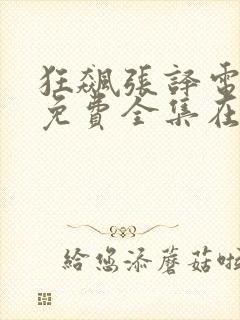 狂飙張譯電
免費全集在
給您添蘑菇啦